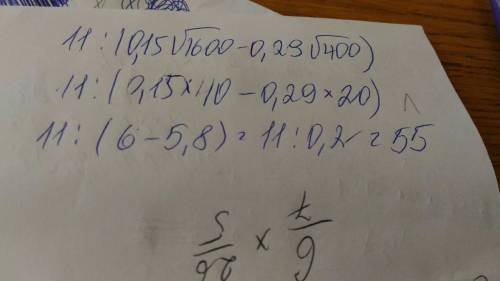 11 : (0,15√1600 – 0,29√400)
11 : (0,15×40 – 0,29×20)
11 : (6 – 5,8) = 11 : 0,2 = 55
6/7 × 26/5